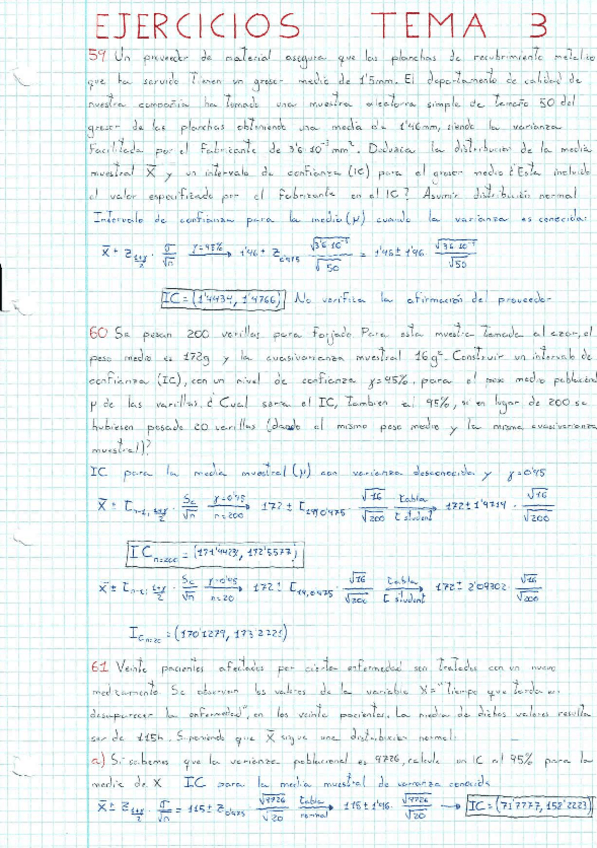 EJERCICIOS TEMA 3
59 Un proveedor de material asegura que las planchas de recubrimiento metalico
que ha servido tienen un grosor medio de 1'5mm. El departamento de calidad de
nuestra compañia ha tomado una muestra aleatoria simple de tamaño 50 del
grosor de las planchas obteniendo una media de 1'46mm, siendo la varianza
facilitada por el fabricante de 3'6·10⁻³ mm². Deduzca la distribucion de la media
muestral X̄ y un intervalo de confianza (IC) para el grosor medio ¿Esta incluido
el valor especificado por el fabricante en el IC? Asumir distribución normal
Intervalo de confianza para la media (μ) cuando la varianza es conocida:
X̄ ± Z_{(1+γ)/2} · σ/√n → 1'46 ± Z_{0'975} · √(3'6·10⁻³)/√50 = 1'46 ± 1'96 · √(3'6·10⁻³)/√50
IC = (1'4434, 1'4766) No verifica la afirmación del proveedor
60 Se pesan 200 varillas para forjado. Para esta muestra tomada al azar, el
peso medio es 172g y la cuasivarianza muestral 16g². Construir un intervalo de
confianza (IC), con un nivel de confianza γ=95%, para el peso medio poblacional
μ de las varillas. ¿Cual seria el IC, tambien al 95%, si en lugar de 200 se
hubiesen pesado 20 varillas (dando el mismo peso medio y la misma cuasivarianza
muestral)?
IC para la media muestral (μ) con varianza desconocida y γ=0'95
X̄ ± t_{n-1, (1+γ)/2} · Sc/√n γ=0'95 n=200 → 172 ± t · √16/√200 tabla t student → 172 ± 1'9714 · √16/√200
IC_{n=200} = (171'4423, 172'5577)
X̄ ± t_{n-1, (1+γ)/2} · Sc/√n γ=0'95 n=20 → 172 ± t_{19, 0'975} · √16 tabla t student → 172 ± 2'09302 · √16
IC_{n=20} = (170'1279, 173'2221)
61 Veinte pacientes afectados por cierta enfermedad son tratados con un nuevo
medicamento. Se observan los valores de la variable X="tiempo que tarda en
desaparecer la enfermedad", en los veinte pacientes. La media de dichos valores resulta
ser de 115h. Suponiendo que X sigue una distribucion normal:
a) Si sabemos que la varianza poblacional es 9726, calcule un IC al 95% para la
media de X IC para la media muestral de varianza conocida
X̄ ± Z_{(1+γ)/2} · σ/√n = 115 ± Z_{0'975} · √9726/√20 tabla normal → 115 ± 1'96 · √9726/√20 → IC = (71'7777, 158'2223)